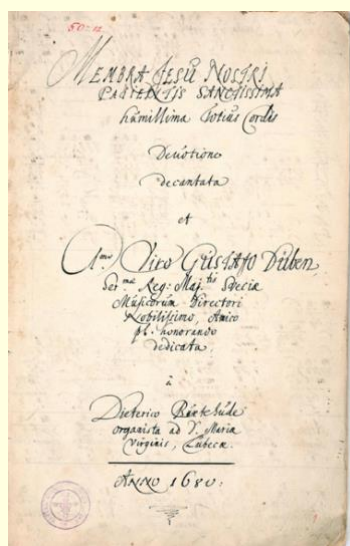 50:12
MEMBRA JESU NOSTRI
PATIENTIS SANCTISSIMA
humillima Totius Cordis
Devotione
decantata
et
Viro GUSTAFO Düben
Ser.mæ Reg: Maj.tis Sveciæ
Musicorum Directori
Nobilissimo, Amico
pl. honorando
dedicata
à
Dieterico Buxtehude
organista ad S. Mariæ
Virginis, Lubecæ.
ANNO 1680.